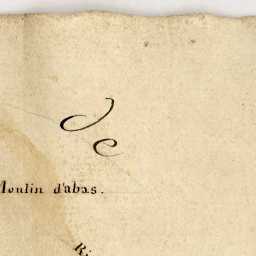 de
Moulin d'abas.
Ri